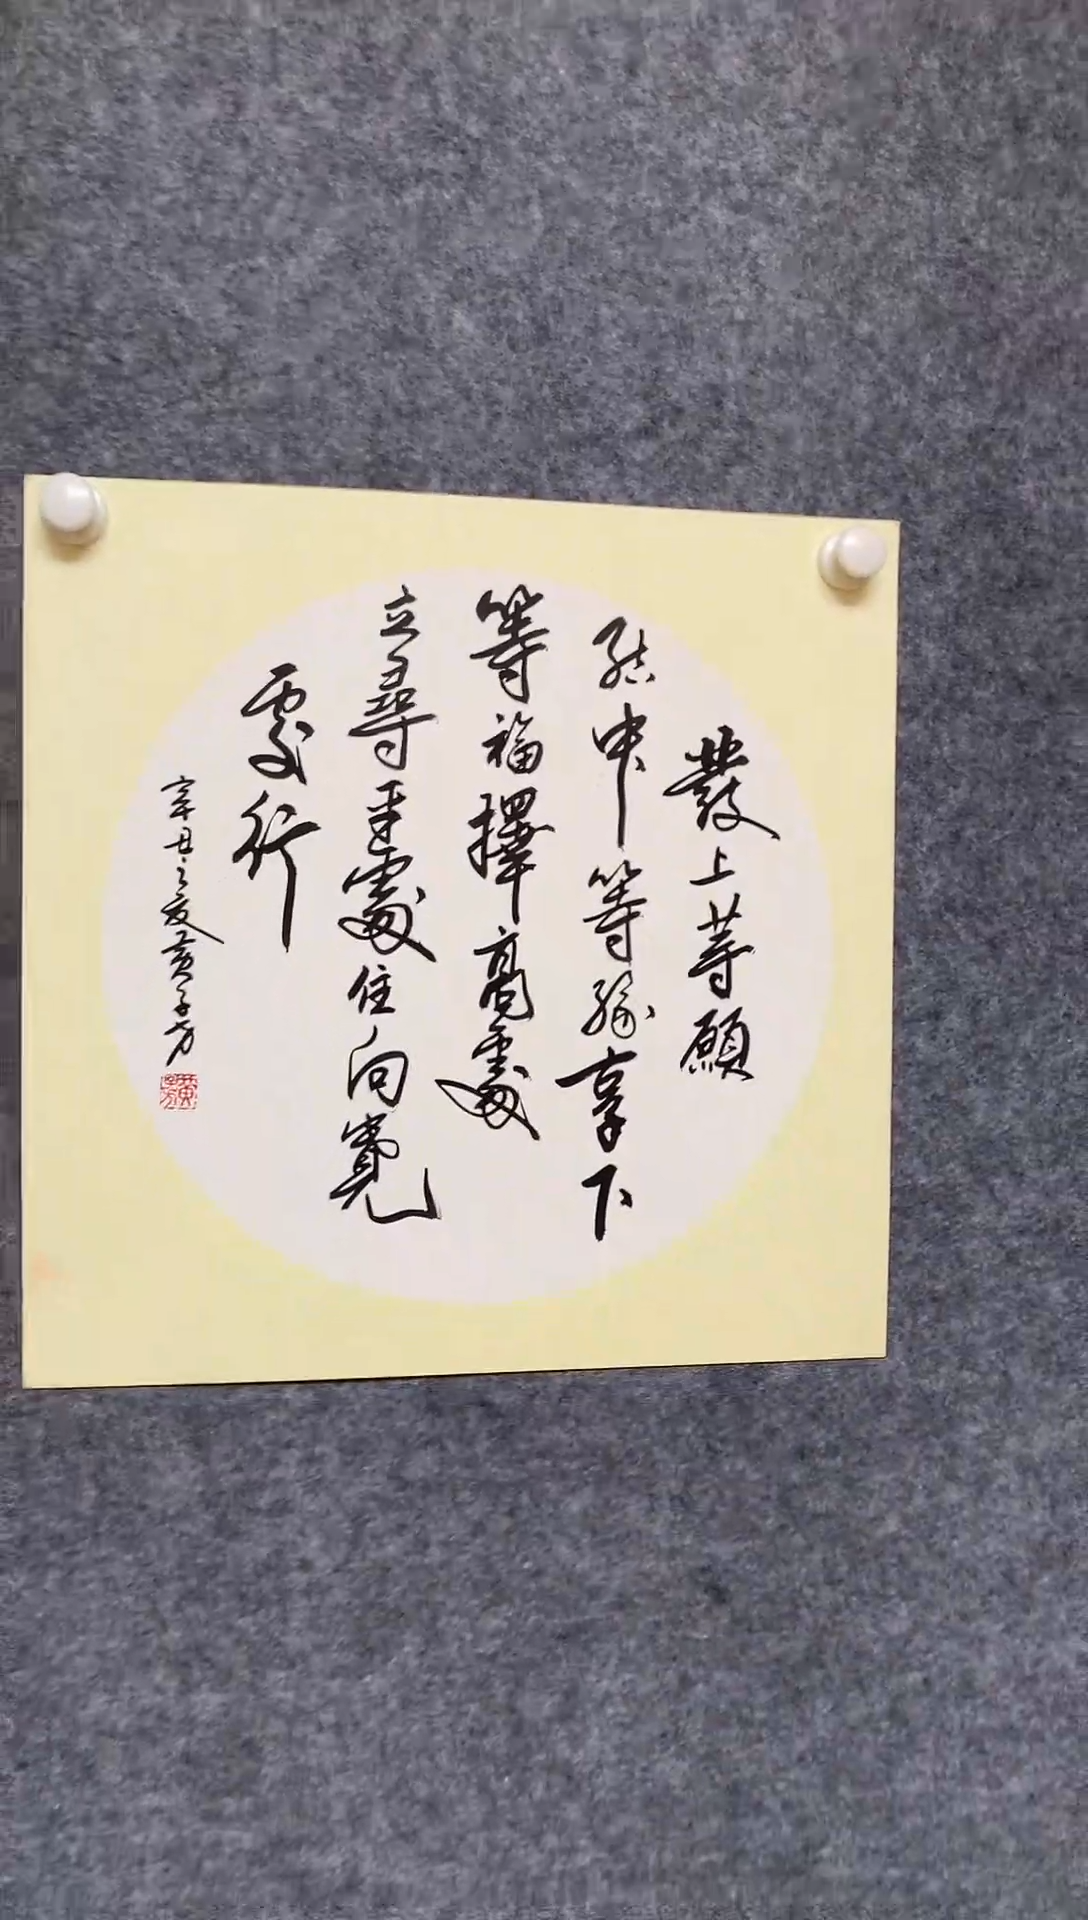 發上等願
結中等緣享下
等福擇高處
立尋平處住向寬
處行
辛丑之夏黃子方